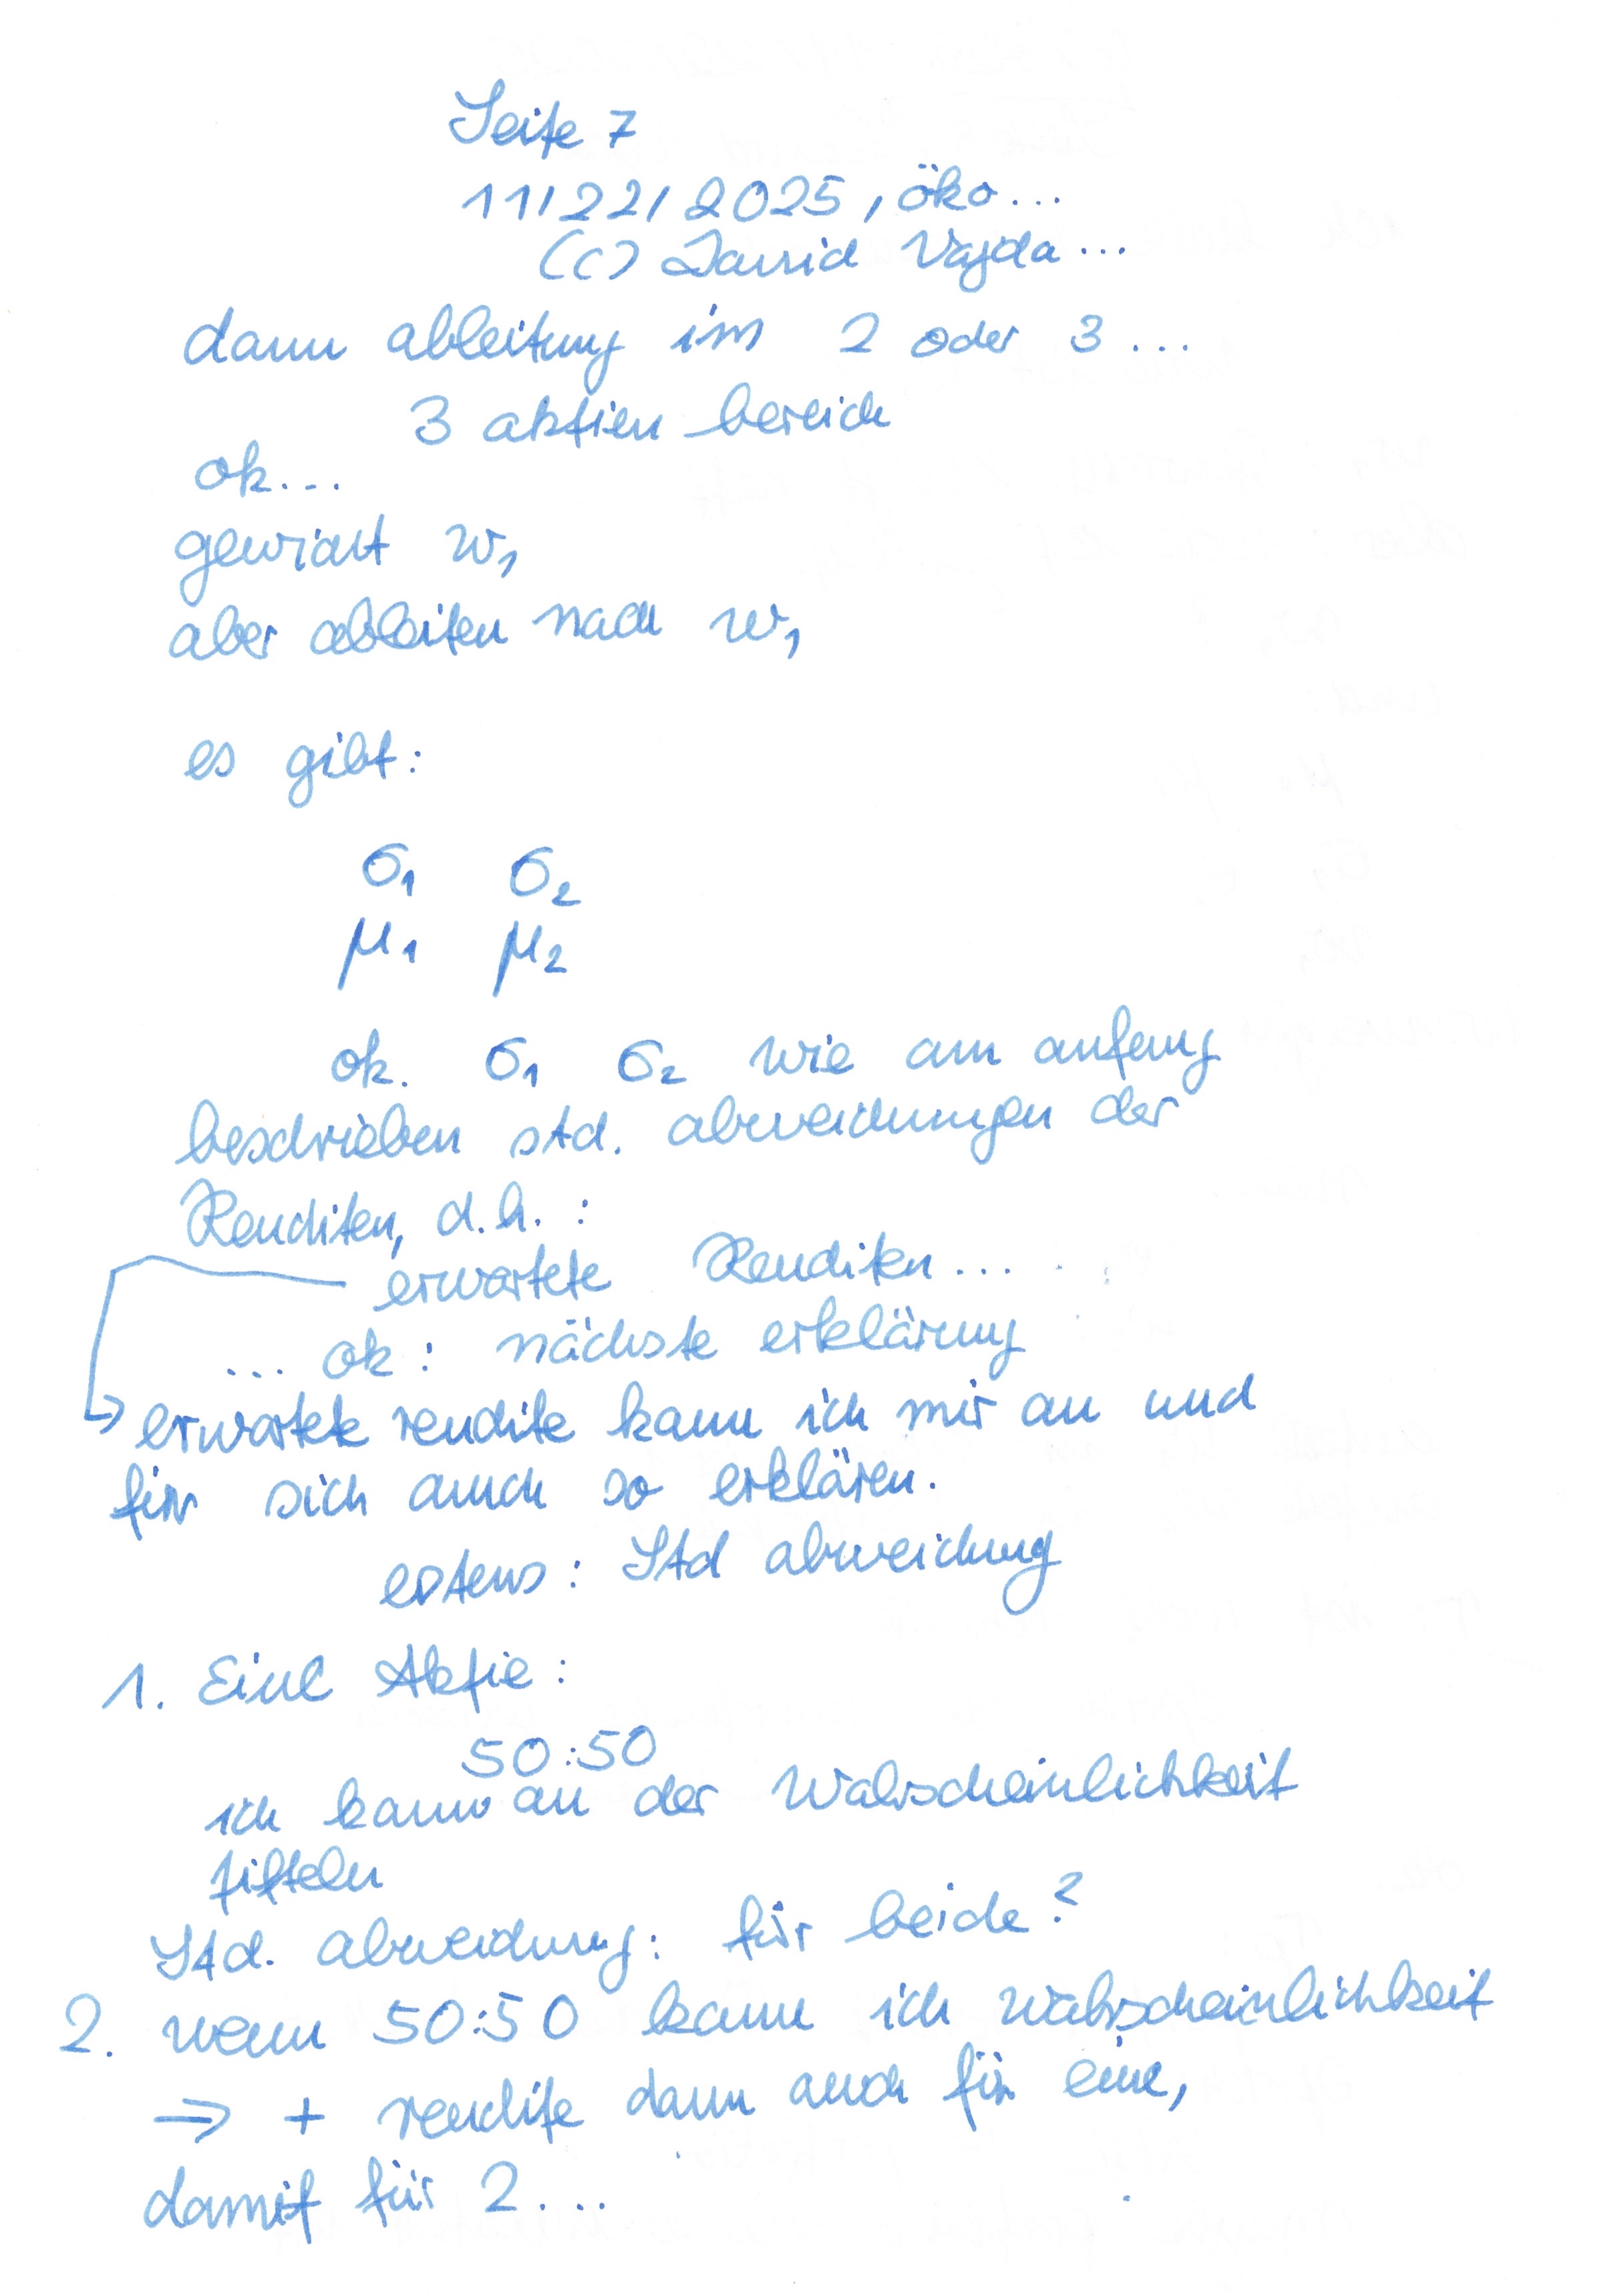 Seite 7
11/22/2025, öko...
(c) David Vajda...
dann ableitung im 2 oder 3 ...
3 aktien bereich
ok...
gewicht w₁
aber ableiten nach w₁
es gibt:
σ₁ σ₂
μ₁ μ₂
ok. σ₁ σ₂ wie am anfang
beschrieben std. abweichungen der
Renditen, d.h. :
erwartete Renditen...
... ok: nächste erklärung
erwartete rendite kann ich mir an und
für sich auch so erklären.
erstens: Std abweichung
1. Eine Aktie:
50:50
ich kann an der Wahrscheinlichkeit
Std. abweichung: für beide?
2. wenn 50:50 kann ich wahrscheinlichkeit
⇒ + rendite dann auch für eine,
damit für 2...